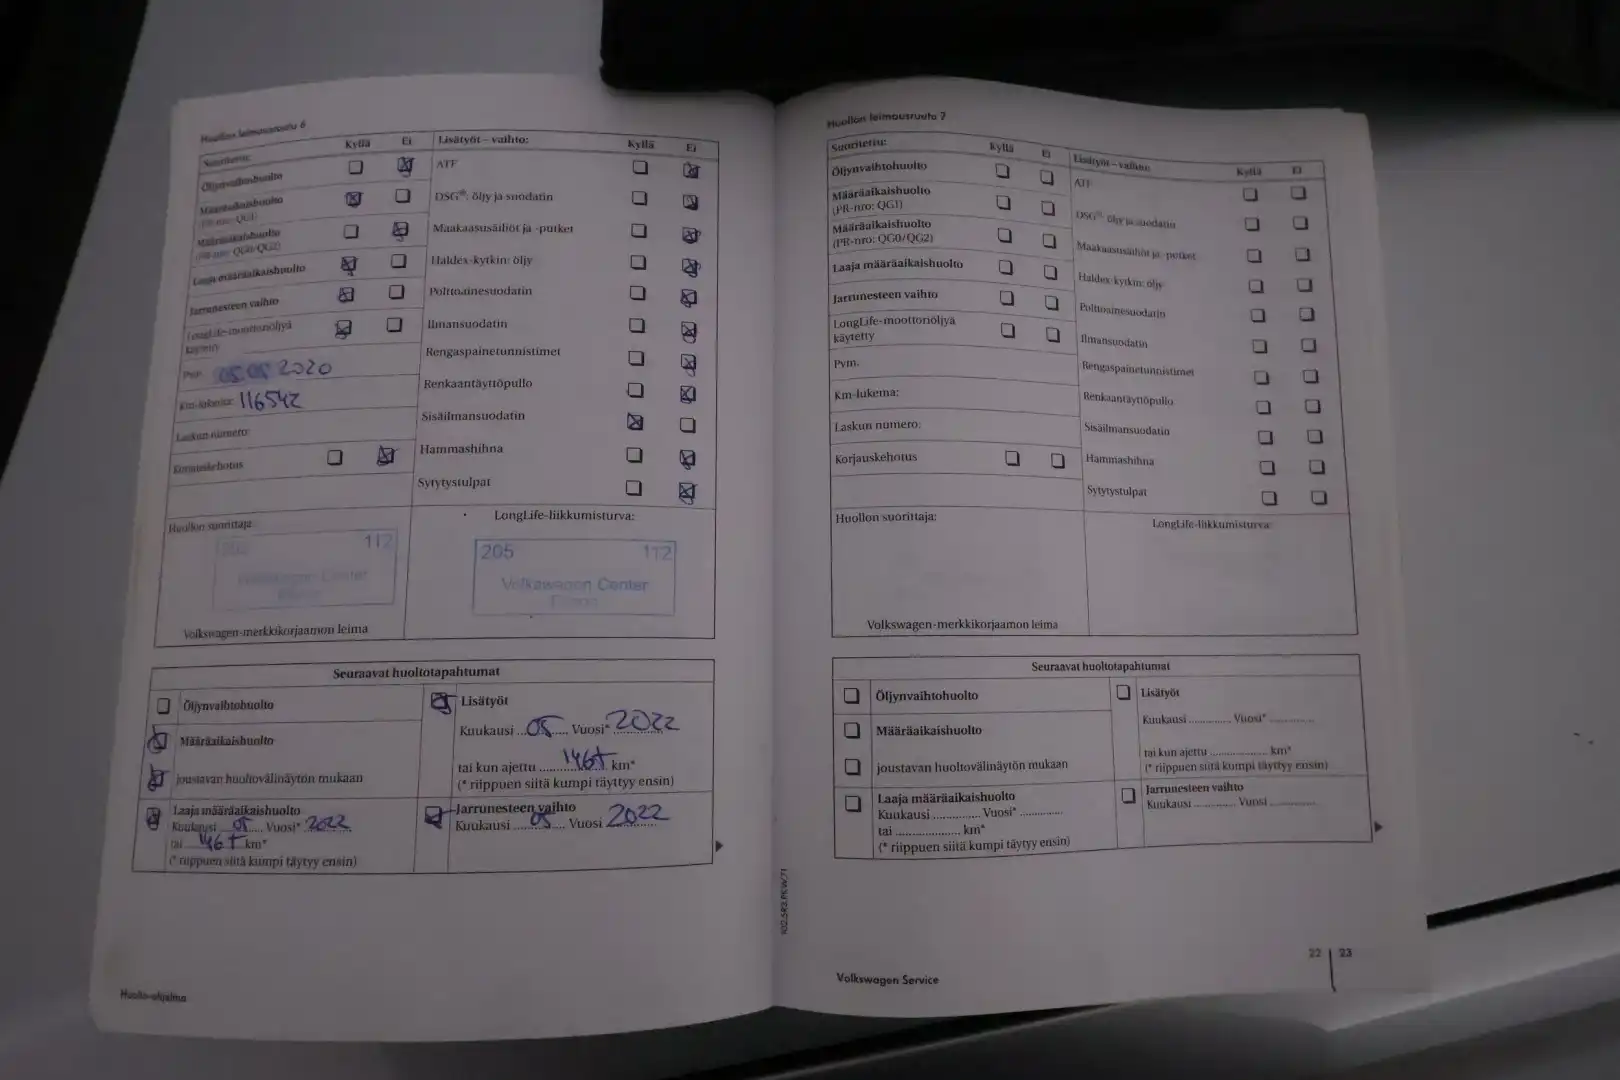 Huollon leimausruutu 6
Suoritettu: Kyllä Ei
Öljynvaihtohuolto
Määräaikaishuolto
(PR-nro: QG1)
Määräaikaishuolto
(PR-nro: QG0/QG2)
Laaja määräaikaishuolto
Jarrunesteen vaihto
LongLife-moottoriöljyä
käytetty
Pvm. 05.05 2020
Km-lukema: 116542
Laskun numero:
Korjauskehotus
Lisätyöt – vaihto: Kyllä Ei
ATF
DSG®: öljy ja suodatin
Maakaasusäiliöt ja -putket
Haldex-kytkin: öljy
Polttoainesuodatin
Ilmansuodatin
Rengaspainetunnistimet
Renkaantäyttöpullo
Sisäilmansuodatin
Hammashihna
Sytytystulpat
Huollon suorittaja:
205 112
Volkswagen Center
Volkswagen-merkkikorjaamon leima
LongLife-liikkumisturva:
205 112
Volkswagen Center
Seuraavat huoltotapahtumat
Öljynvaihtohuolto
Määräaikaishuolto
joustavan huoltovälinäytön mukaan
Laaja määräaikaishuolto
Kuukausi 05 Vuosi* 2022
tai 146T km*
(* riippuen siitä kumpi täytyy ensin)
Lisätyöt
Kuukausi 05 Vuosi* 2022
tai kun ajettu 146T km*
(* riippuen siitä kumpi täyttyy ensin)
Jarrunesteen vaihto
Kuukausi 05 Vuosi 2022
Huolto-ohjelma
Huollon leimausruutu 7
Suoritettu: Kyllä Ei
Öljynvaihtohuolto
Määräaikaishuolto
(PR-nro: QG1)
Määräaikaishuolto
(PR-nro: QG0/QG2)
Laaja määräaikaishuolto
Jarrunesteen vaihto
LongLife-moottoriöljyä
käytetty
Pvm.
Km-lukema:
Laskun numero:
Korjauskehotus
Lisätyöt – vaihto: Kyllä Ei
ATF
DSG®: öljy ja suodatin
Maakaasusäiliöt ja -putket
Haldex-kytkin: öljy
Polttoainesuodatin
Ilmansuodatin
Rengaspainetunnistimet
Renkaantäyttöpullo
Sisäilmansuodatin
Hammashihna
Sytytystulpat
Huollon suorittaja:
Volkswagen-merkkikorjaamon leima
LongLife-liikkumisturva:
Seuraavat huoltotapahtumat
Öljynvaihtohuolto
Määräaikaishuolto
joustavan huoltovälinäytön mukaan
Laaja määräaikaishuolto
Kuukausi .............. Vuosi* .............
tai .................... km*
(* riippuen siitä kumpi täytyy ensin)
Lisätyöt
Kuukausi ............. Vuosi* .............
tai kun ajettu .................. km*
(* riippuen siitä kumpi täyttyy ensin)
Jarrunesteen vaihto
Kuukausi ............. Vuosi .............
Volkswagen Service
22 23